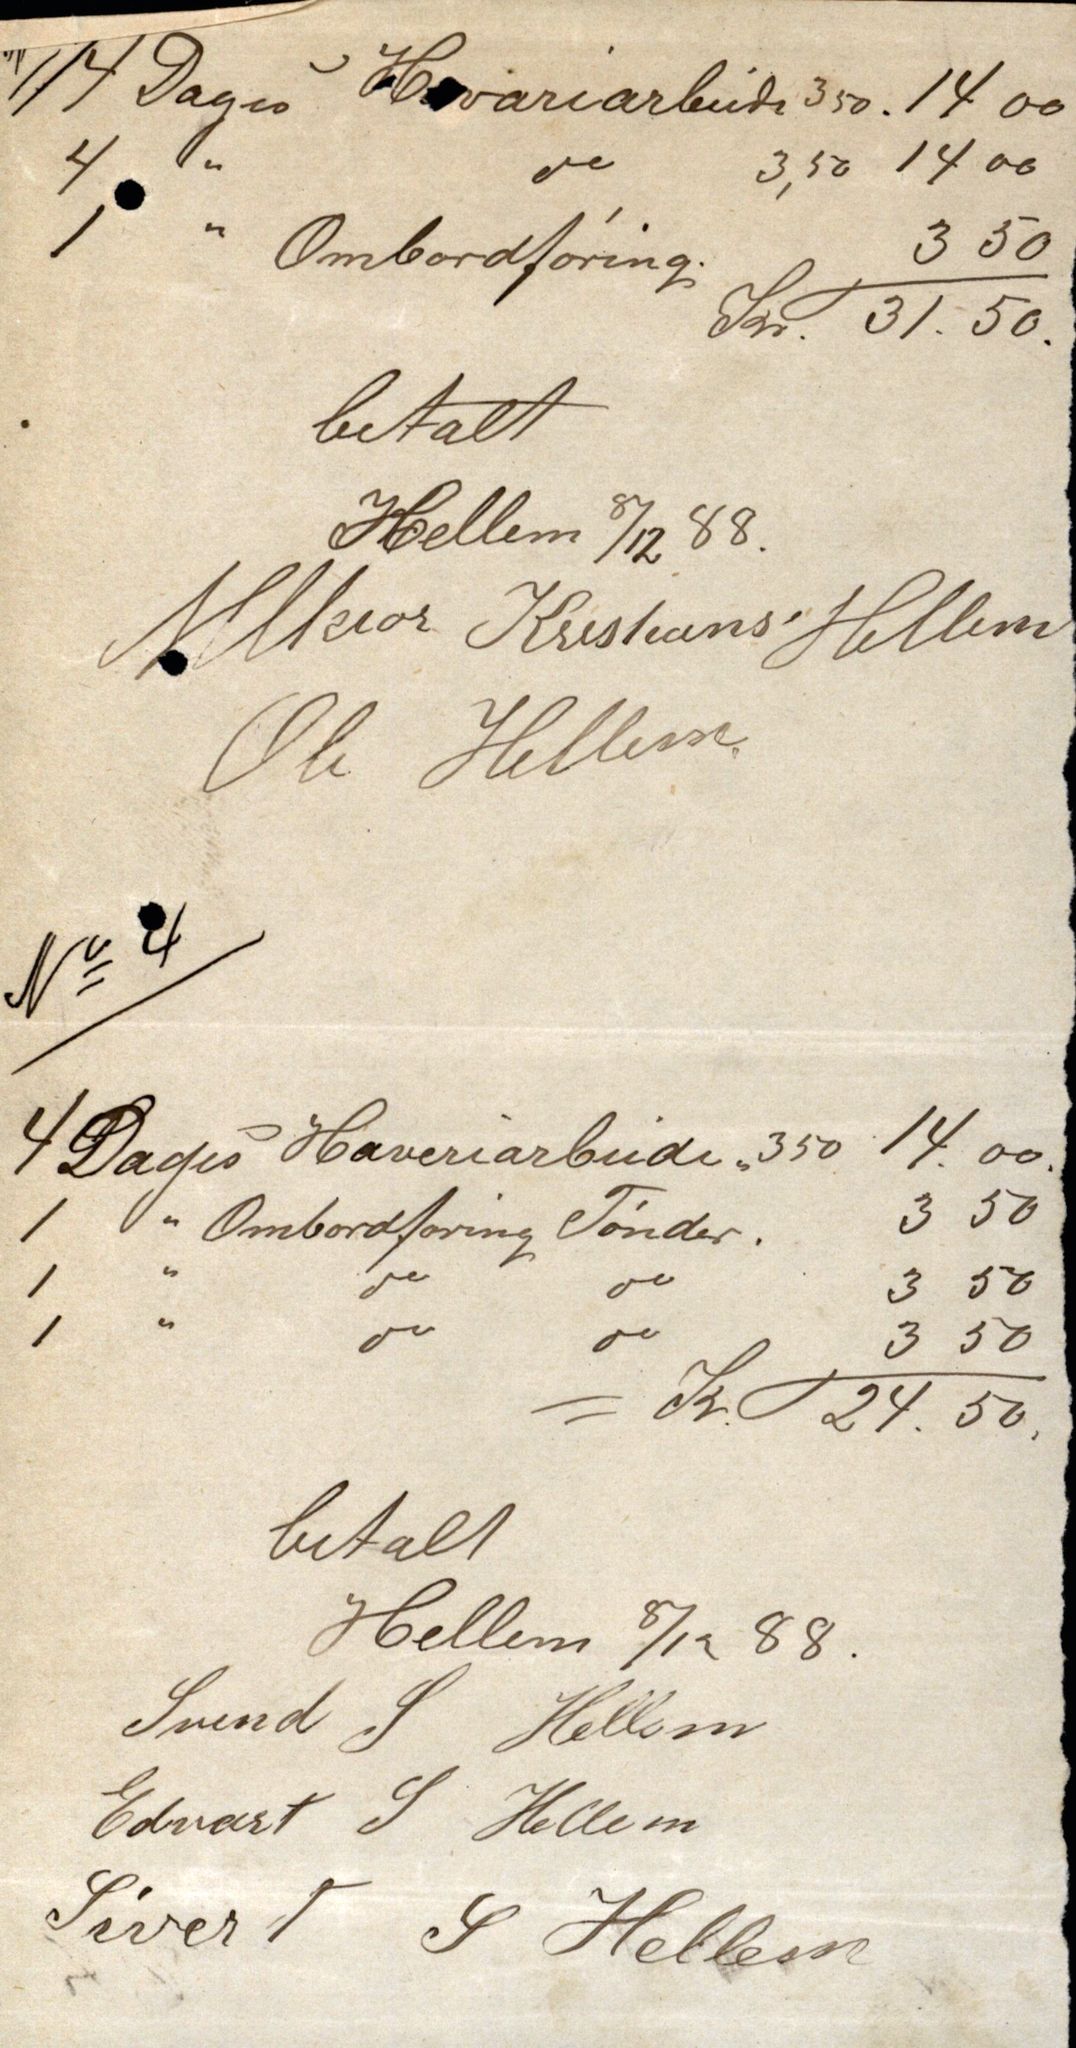 4 Dages Havariarbeide 350. 14 00
4 " do 3,50 14 00
1 " Ombordføring. 3 50
Kr. 31. 50.
betalt
Hellem 8/12 88.
Melkior Kristians Hellem
Ole Hellem.
No 4
4 Dages Haveriarbeide " 350 14. 00.
1 " Ombordføring Tønder. 3 50
1 " do do 3 50
1 " do do 3 50
= Kr. 24. 50.
betalt
Hellem 8/12 88.
Svend S Hellem
Edvart S Hellem
Sivert S Hellem